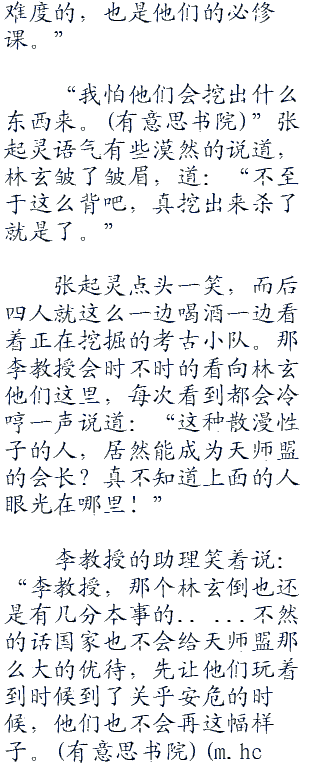 难度的，也是他们的必修
课。”
“我怕他们会挖出什么
东西来。(有意思书院)”张
起灵语气有些漠然的说道，
林玄皱了皱眉，道：“不至
于这么背吧，真挖出来杀了
就是了。”
张起灵点头一笑，而后
四人就这么一边喝酒一边看
着正在挖掘的考古小队。那
李教授会时不时的看向林玄
他们这里，每次看到都会冷
哼一声说道：“这种散漫性
子的人，居然能成为天师盟
的会长？真不知道上面的人
眼光在哪里！”
李教授的助理笑着说：
“李教授，那个林玄倒也还
是有几分本事的．．．．．．不然
的话国家也不会给天师盟那
么大的优待，先让他们玩着
到时候到了关乎安危的时
候，他们也不会再这幅样
子。(有意思书院)(m.hc